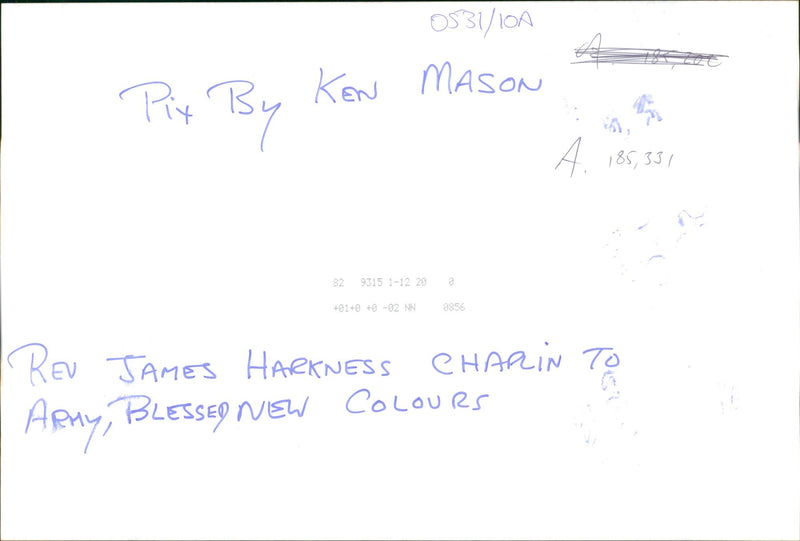 0531/10A
Pix By Ken MASON
A. 185,331
82 9315 1-12 20 0
+01+0 +0 -02 NN 0856
REV JAMES HARKNESS CHAPLIN TO
ARMY, BLESSED NEW COLOURS